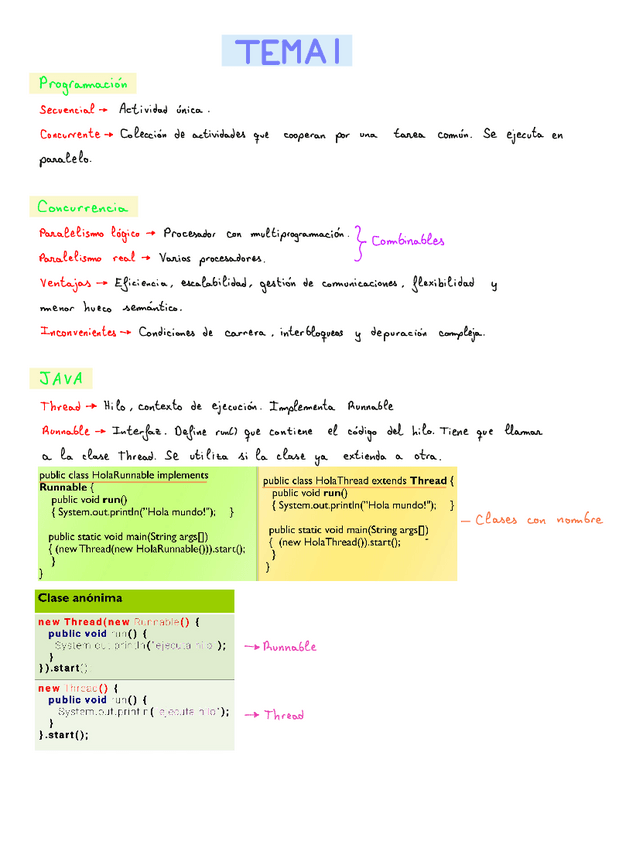 TEMA 1
Programación
Secuencial → Actividad única.
Concurrente → Colección de actividades que cooperan por una tarea común. Se ejecuta en
paralelo.
Concurrencia
Paralelismo lógico → Procesador con multiprogramación.
Paralelismo real → Varios procesadores.
Combinables
Ventajas → Eficiencia, escalabilidad, gestión de comunicaciones, flexibilidad y
menor hueco semántico.
Inconvenientes → Condiciones de carrera, interbloqueos y depuración compleja.
JAVA
Thread → Hilo, contexto de ejecución. Implementa Runnable
Runnable → Interfaz. Define run() que contiene el código del hilo. Tiene que llamar
a la clase Thread. Se utiliza si la clase ya extienda a otra.
public class HolaRunnable implements
Runnable {
public void run()
{ System.out.println("Hola mundo!"); }
public static void main(String args[])
{ (new Thread(new HolaRunnable())).start();
}
}
public class HolaThread extends Thread {
public void run()
{ System.out.println("Hola mundo!"); }
public static void main(String args[])
{ (new HolaThread()).start();
}
}
— Clases con nombre
Clase anónima
new Thread(new Runnable() {
public void run() {
System.out.println("ejecuta hilo");
}
}).start()
→ Runnable
new Thread() {
public void run() {
System.out.println("ejecuta hilo");
}
}.start();
→ Thread